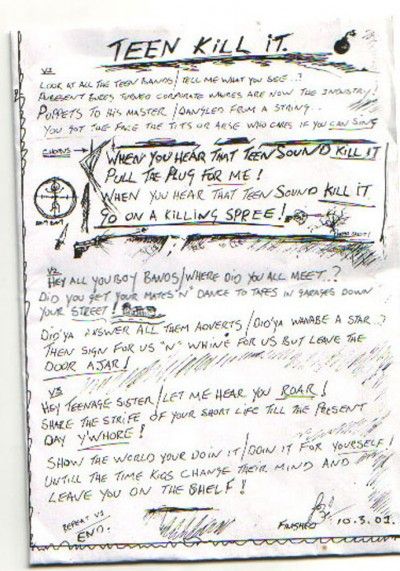 TEEN KILL IT.
V1
LOOK AT ALL THE TEEN BANDS / TELL ME WHAT YOU SEE..?
PUBESENT BABES TURNED CORPORATE WHORES ARE NOW THE INDUSTRY!
PUPPETS TO HIS MASTER / DANGLED FROM A STRING..
YOU GOT THE FACE THE TITS OR ARSE WHO CARES IF YOU CAN SING
CHORUS
WHEN YOU HEAR THAT TEEN SOUND KILL IT
PULL THE PLUG FOR ME!
WHEN YOU HEAR THAT TEEN SOUND KILL IT
GO ON A KILLING SPREE!
HEAD SHOT!
V2
HEY ALL YOU BOY BANDS / WHERE DID YOU ALL MEET..?
DID YOU GET YOUR MATES "N" DANCE TO TAPES IN GARAGES DOWN
YOUR STREET!
DID'YA ANSWER ALL THEM ADVERTS / DID'YA WANABE A STAR..?
THEN SIGN FOR US "N" WHINE FOR US BUT LEAVE THE
DOOR AJAR!
V3
HEY TEENAGE SISTER / LET ME HEAR YOU ROAR!
SHARE THE STRIFE OF YOUR SHORT LIFE TILL THE PRESENT
DAY Y'WHORE!
SHOW THE WORLD YOUR DOIN IT / DOIN IT FOR YOURSELF!
UNTILL THE TIME KIDS CHANGE THEIR MIND AND
LEAVE YOU ON THE SHELF!
REPEAT V1
END.
FINISHED 10.3.01.